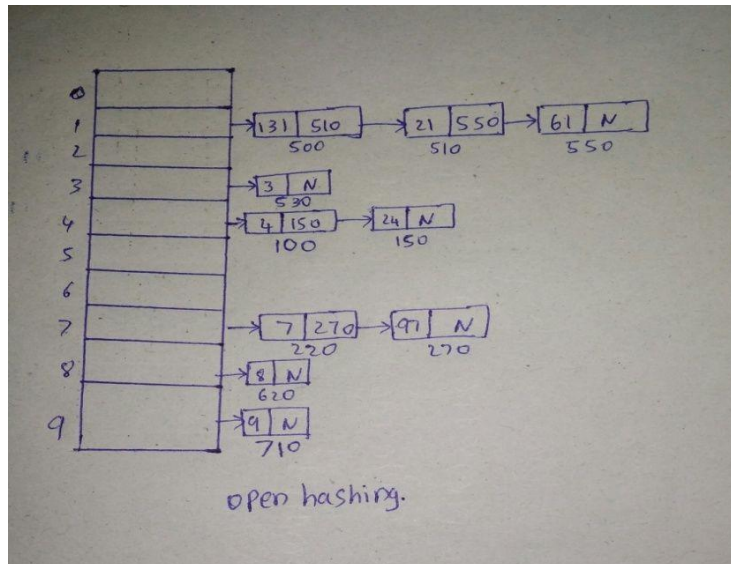 0
1 131 510 21 550 61 N
500 510 550
2
3 3 N
530
4 4 150 24 N
100 150
5
6
7 7 270 97 N
220 270
8 8 N
620
9 9 N
710
open hashing.